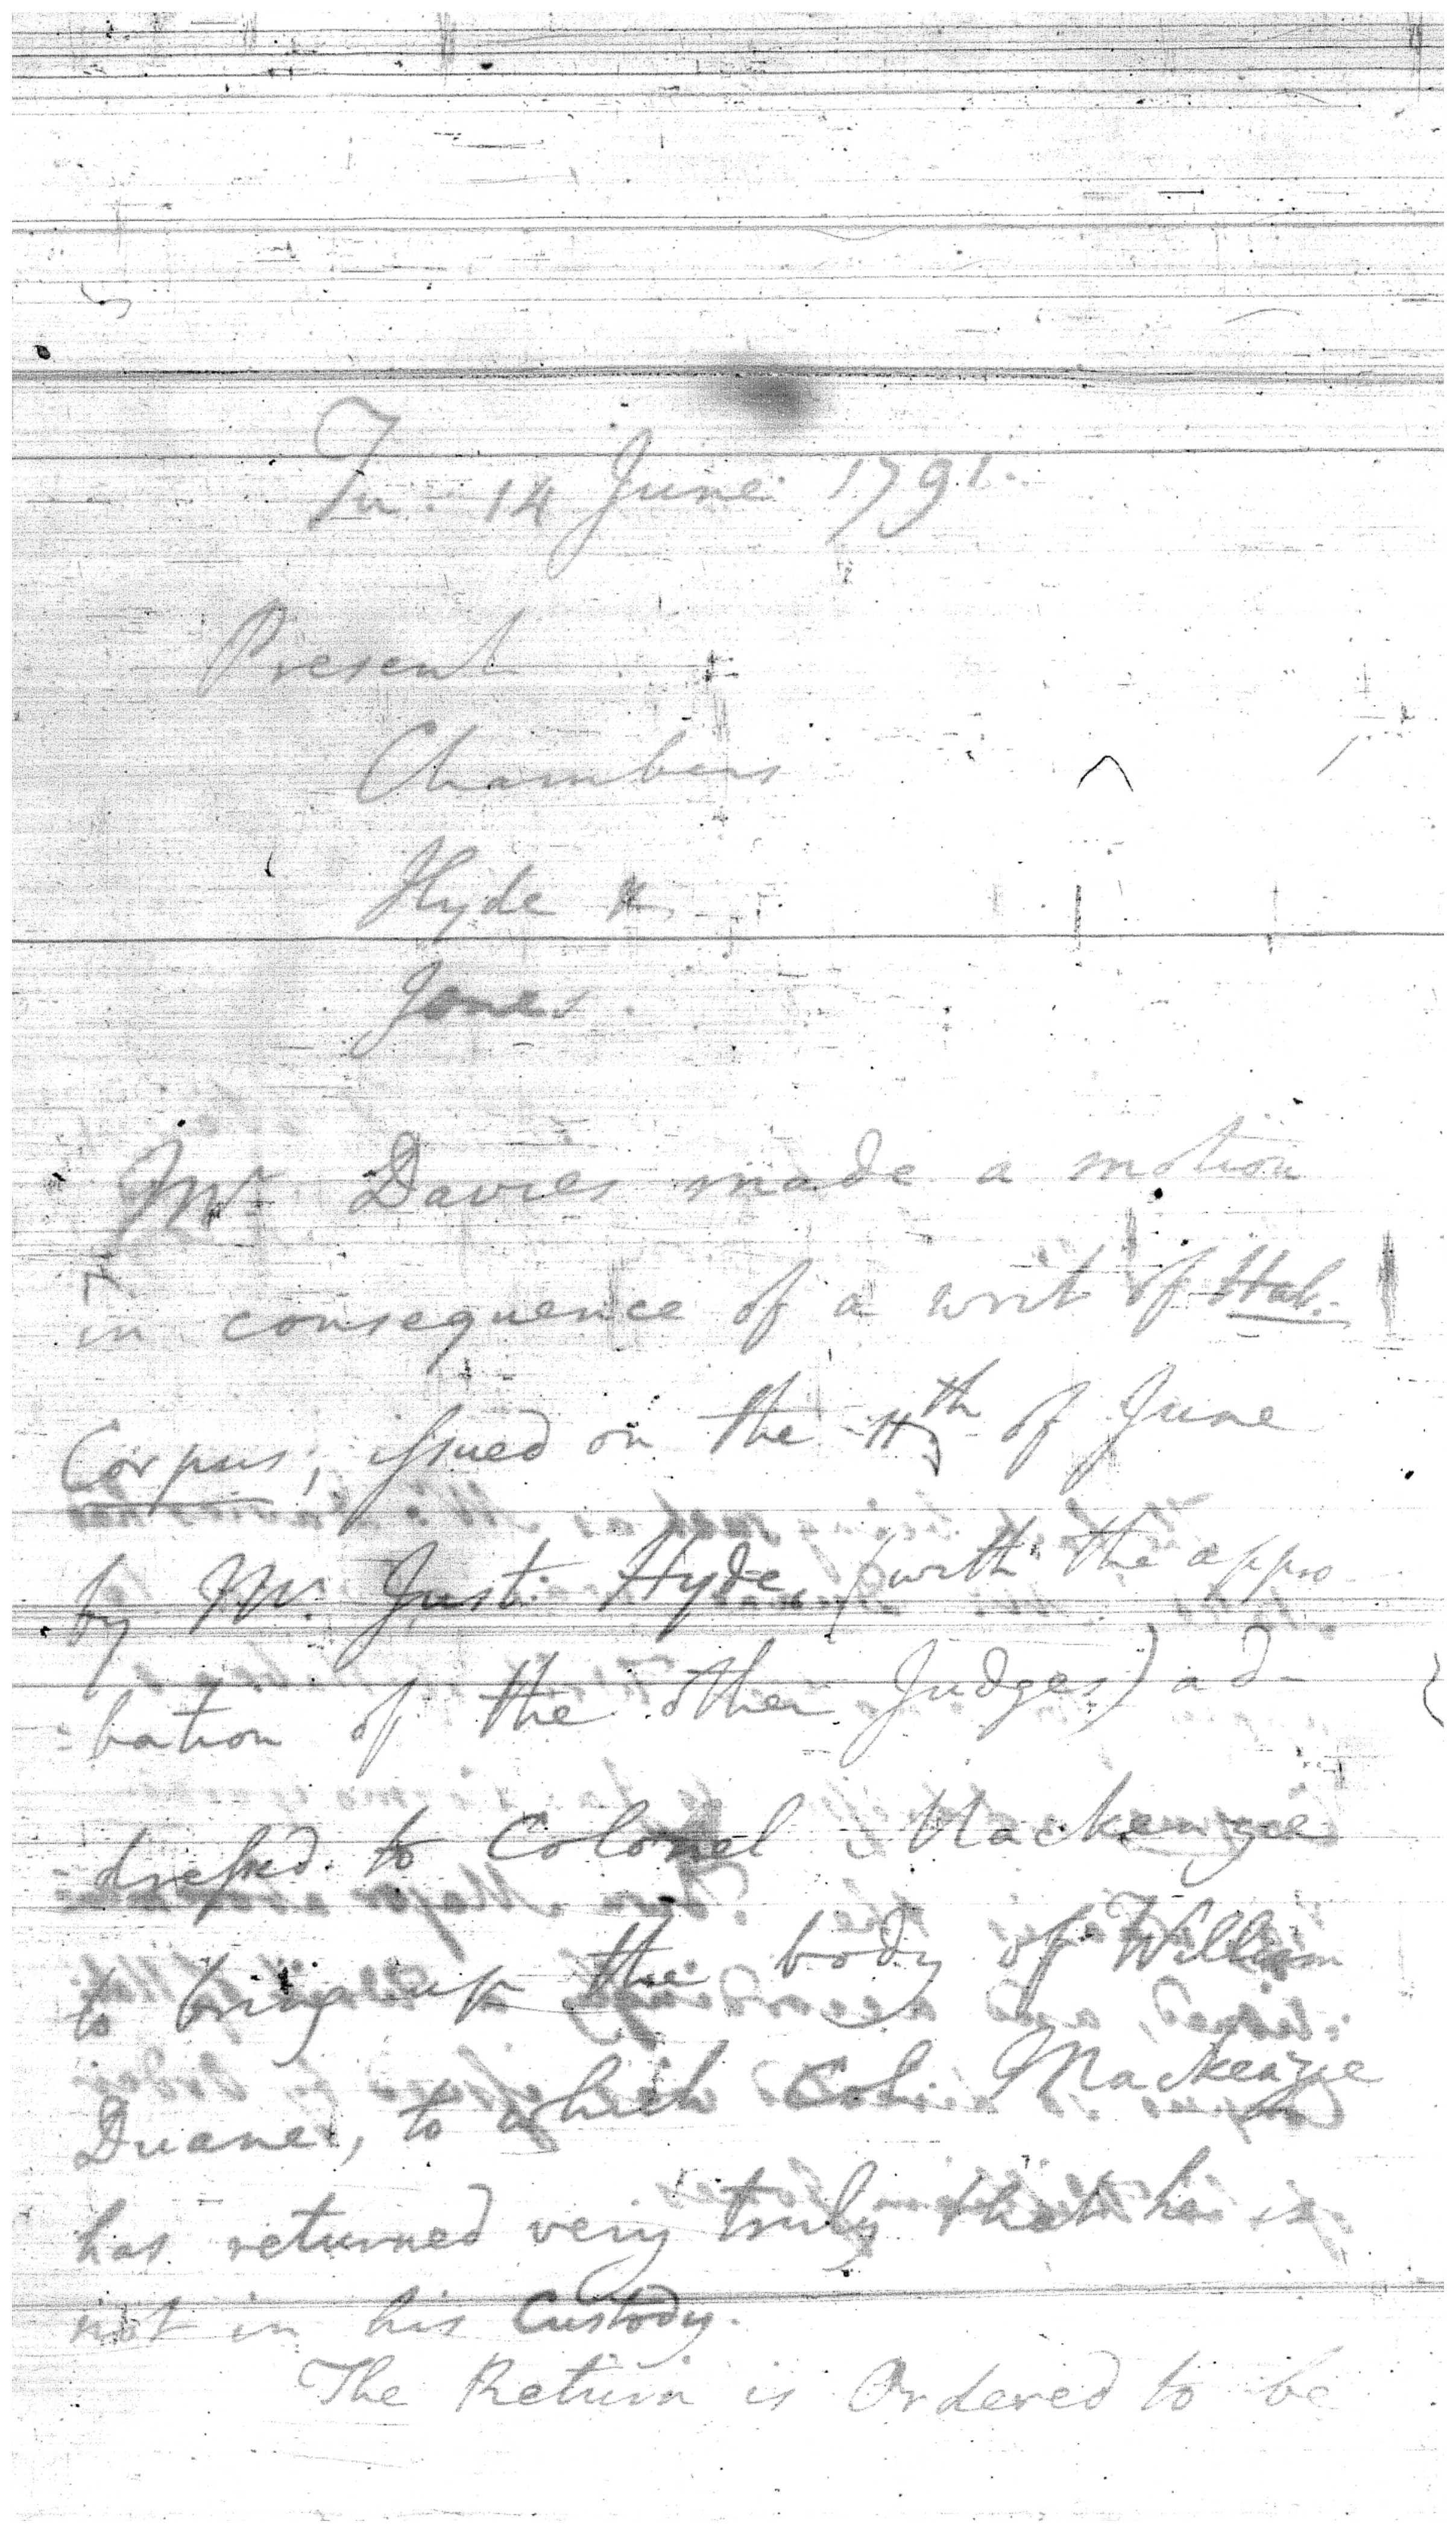 Tu. 14 June 1791.
Present
Chambers
Hyde &
Jones.
Mr Davies made a motion
in consequence of a writ of Hab.
Corpus, issued on the th of June
by Mr. Just. Hyde, (with the appro
:bation of the other Judges) ad-
:dressed to Colonel Mackenzie
to bring up the body of William
Duane, to which Col. Mackenzie
has returned very truly that he is
not in his Custody.
The Return is Ordered to be